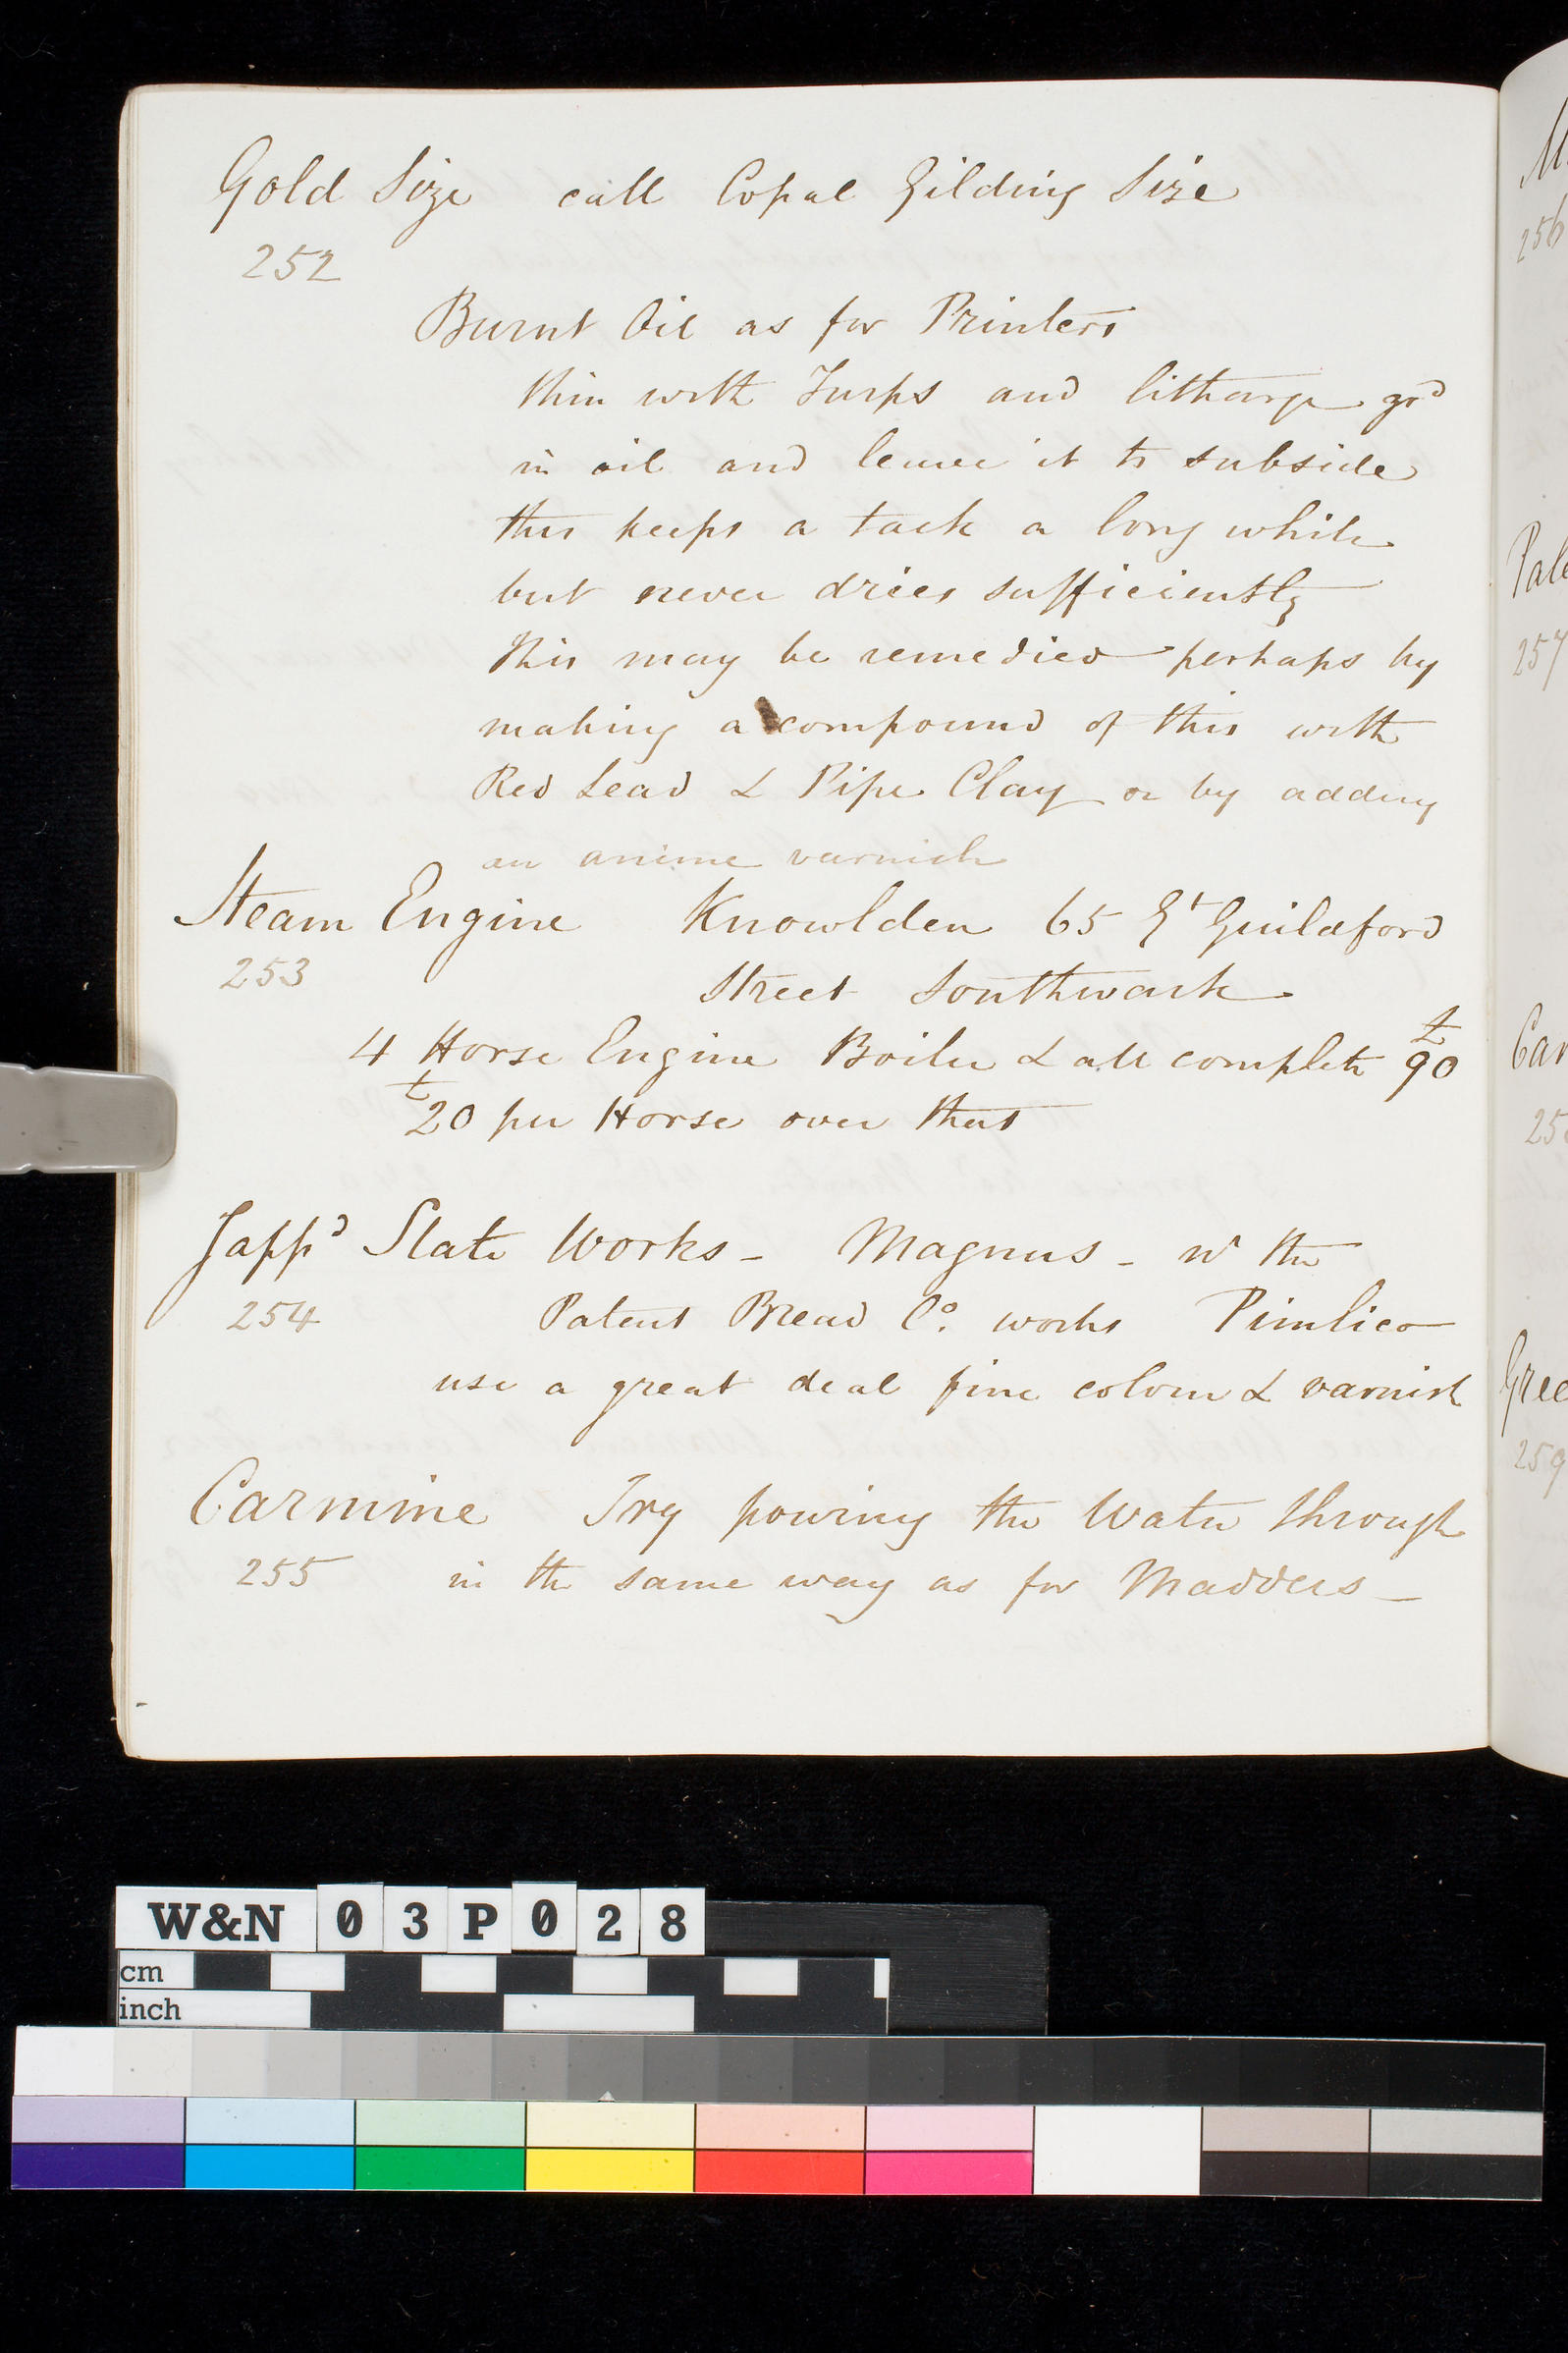 Gold Size call Copal Gilding Size
252
Burnt Oil as for Printers
thin with Turps and litharge grd
in oil and leave it to subside
this keeps a tack a long while
but never dries sufficiently
this may be remedied perhaps by
making a compound of this with
Red Lead & Pipe Clay or by adding
an anime varnish
Steam Engine Knowlden 65 Gt Guildford
253
Street Southwark
4 Horse Engine Boiler & all complete £90
£20 per Horse over that
Jappd Slate Works - Magnus - nr the
254
Patent Bread Co. works Pimlico
use a great deal fine colour & varnish
Carmine Try pouring the Water through
255
in the same way as for Madders -
256
257
259
W&N 03P028
cm
inch